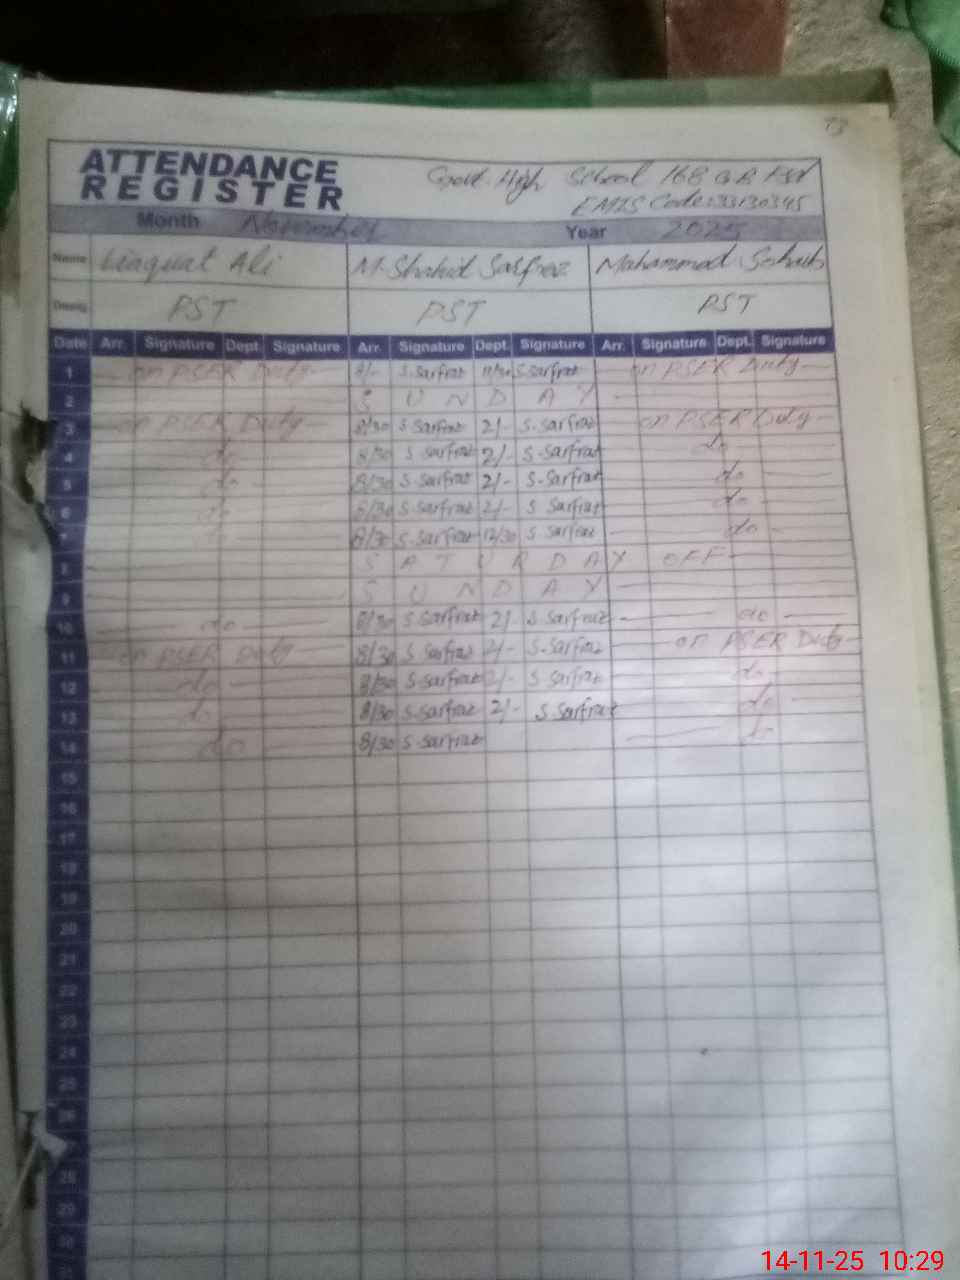 ATTENDANCE
REGISTER
Govt. High School 168 GB Fsd
EMIS Code: 33130345
Month November Year 2025
Name Liaquat Ali M. Shahid Sarfraz Mohammad
PST PST PST
Date Arr. Signature Dept. Signature Arr. Signature Dept. Signature Arr. Signature Dept. Signature
1 on PSER Duty 8/- S.Sarfraz 11/30 S.Sarfraz on PSER Duty
2 S U N D A Y
3 on PSER Duty 8/30 S.Sarfraz 2/- S.Sarfraz on PSER Duty
4 do 8/30 S.Sarfraz 2/- S.Sarfraz do
5 do 8/30 S.Sarfraz 2/- S.Sarfraz do
6 do 8/30 S.Sarfraz 2/- S.Sarfraz do
7 do 8/30 S.Sarfraz 12/30 S.Sarfraz do
8 S A T U R D A Y OFF
9 S U N D A Y
10 do 8/30 S.Sarfraz 2/- S.Sarfraz do
11 on PSER Duty 8/30 S.Sarfraz 2/- S.Sarfraz on PSER Duty
12 do 8/30 S.Sarfraz 2/- S.Sarfraz do
13 do 8/30 S.Sarfraz 2/- S.Sarfraz do
14 do 8/30 S.Sarfraz do
15
16
17
18
19
20
21
22
23
24
25
26
27
28
29
30
14-11-25 10:29